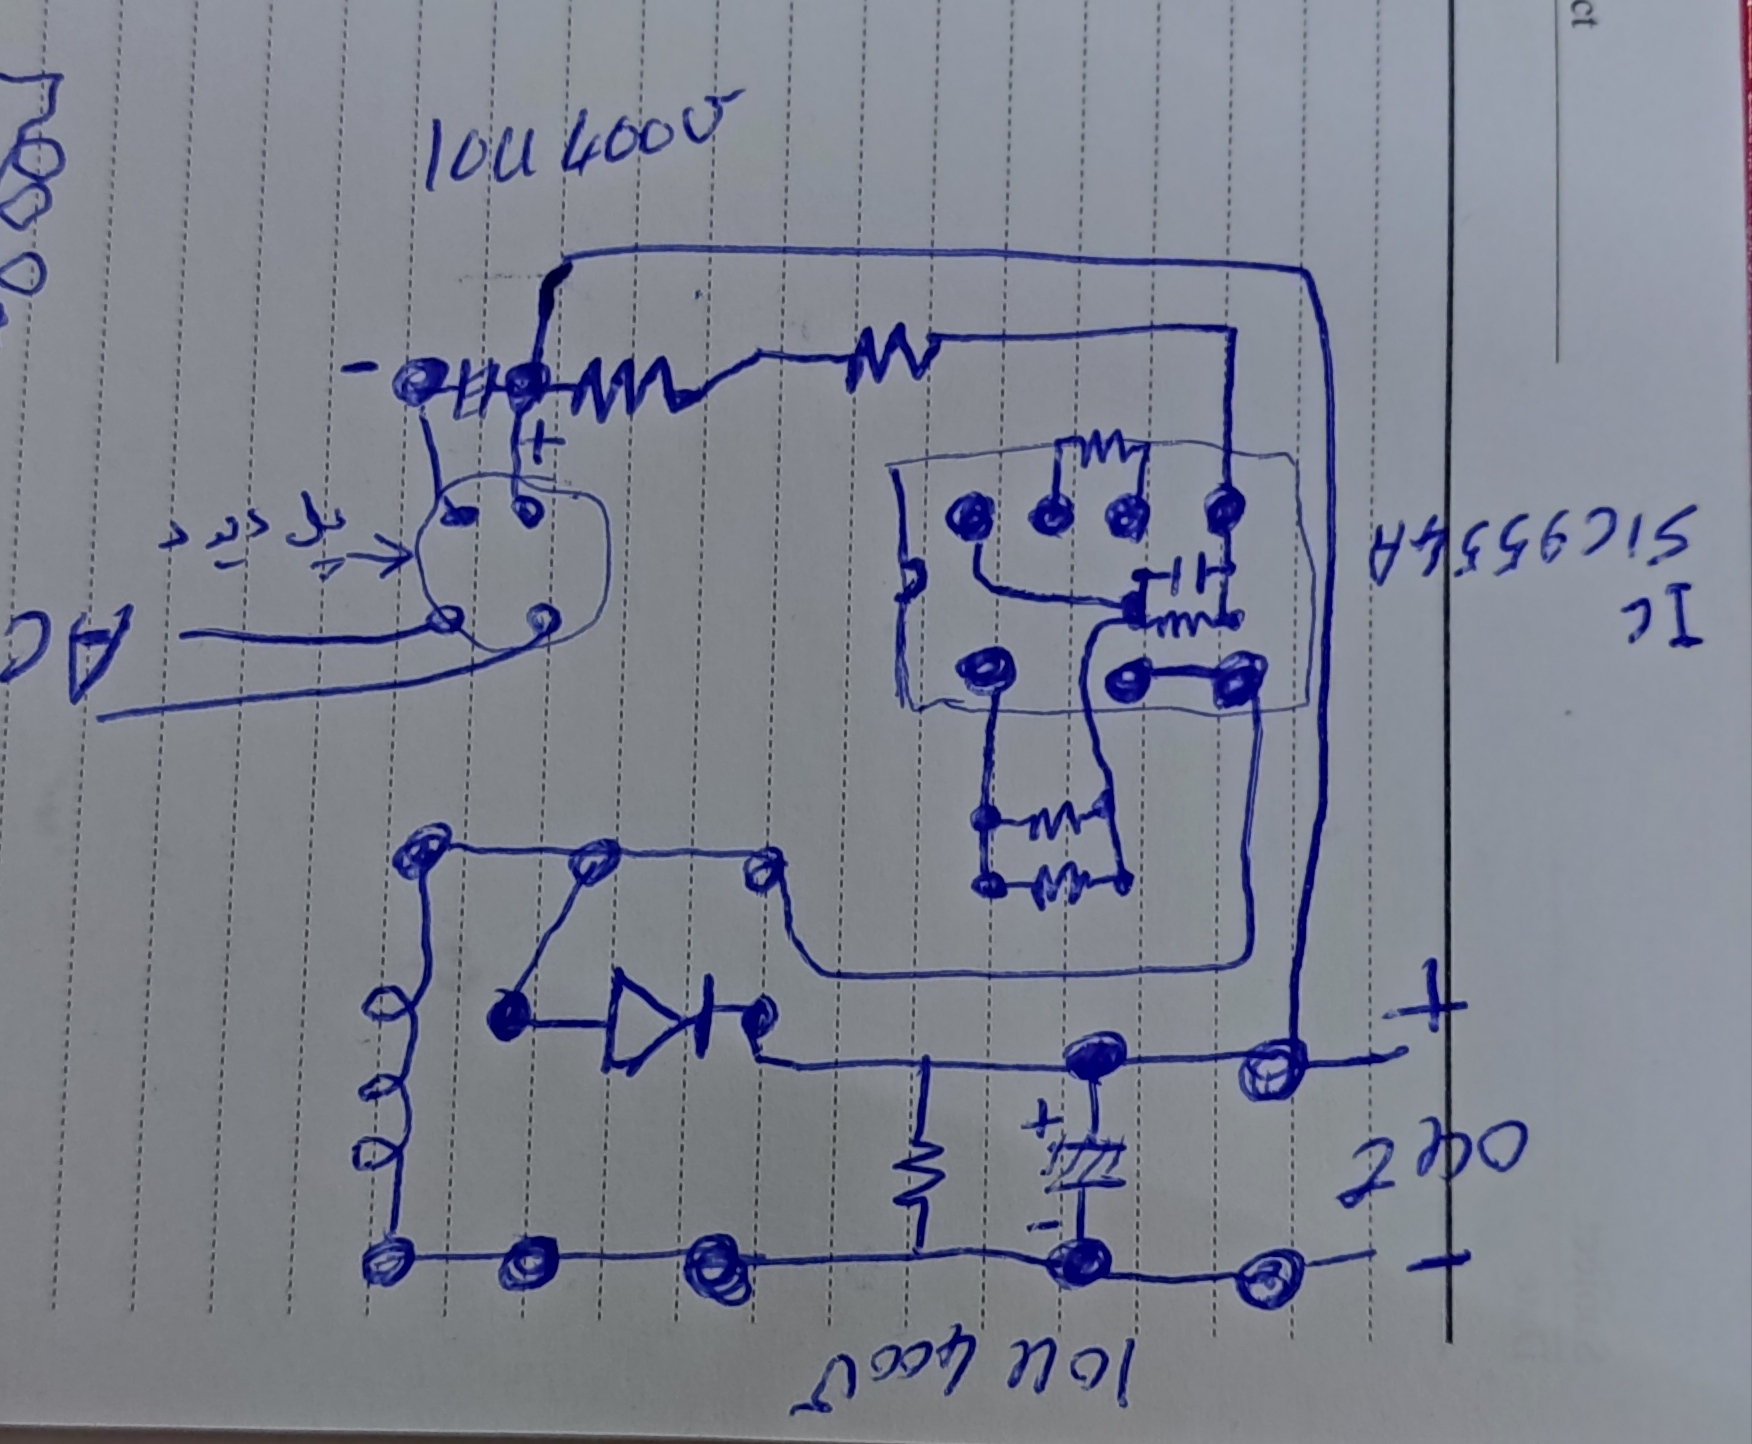 ct
10u 400v
-
+
AC
Ic
SIC9554A
+
-
+
-
10u 400v